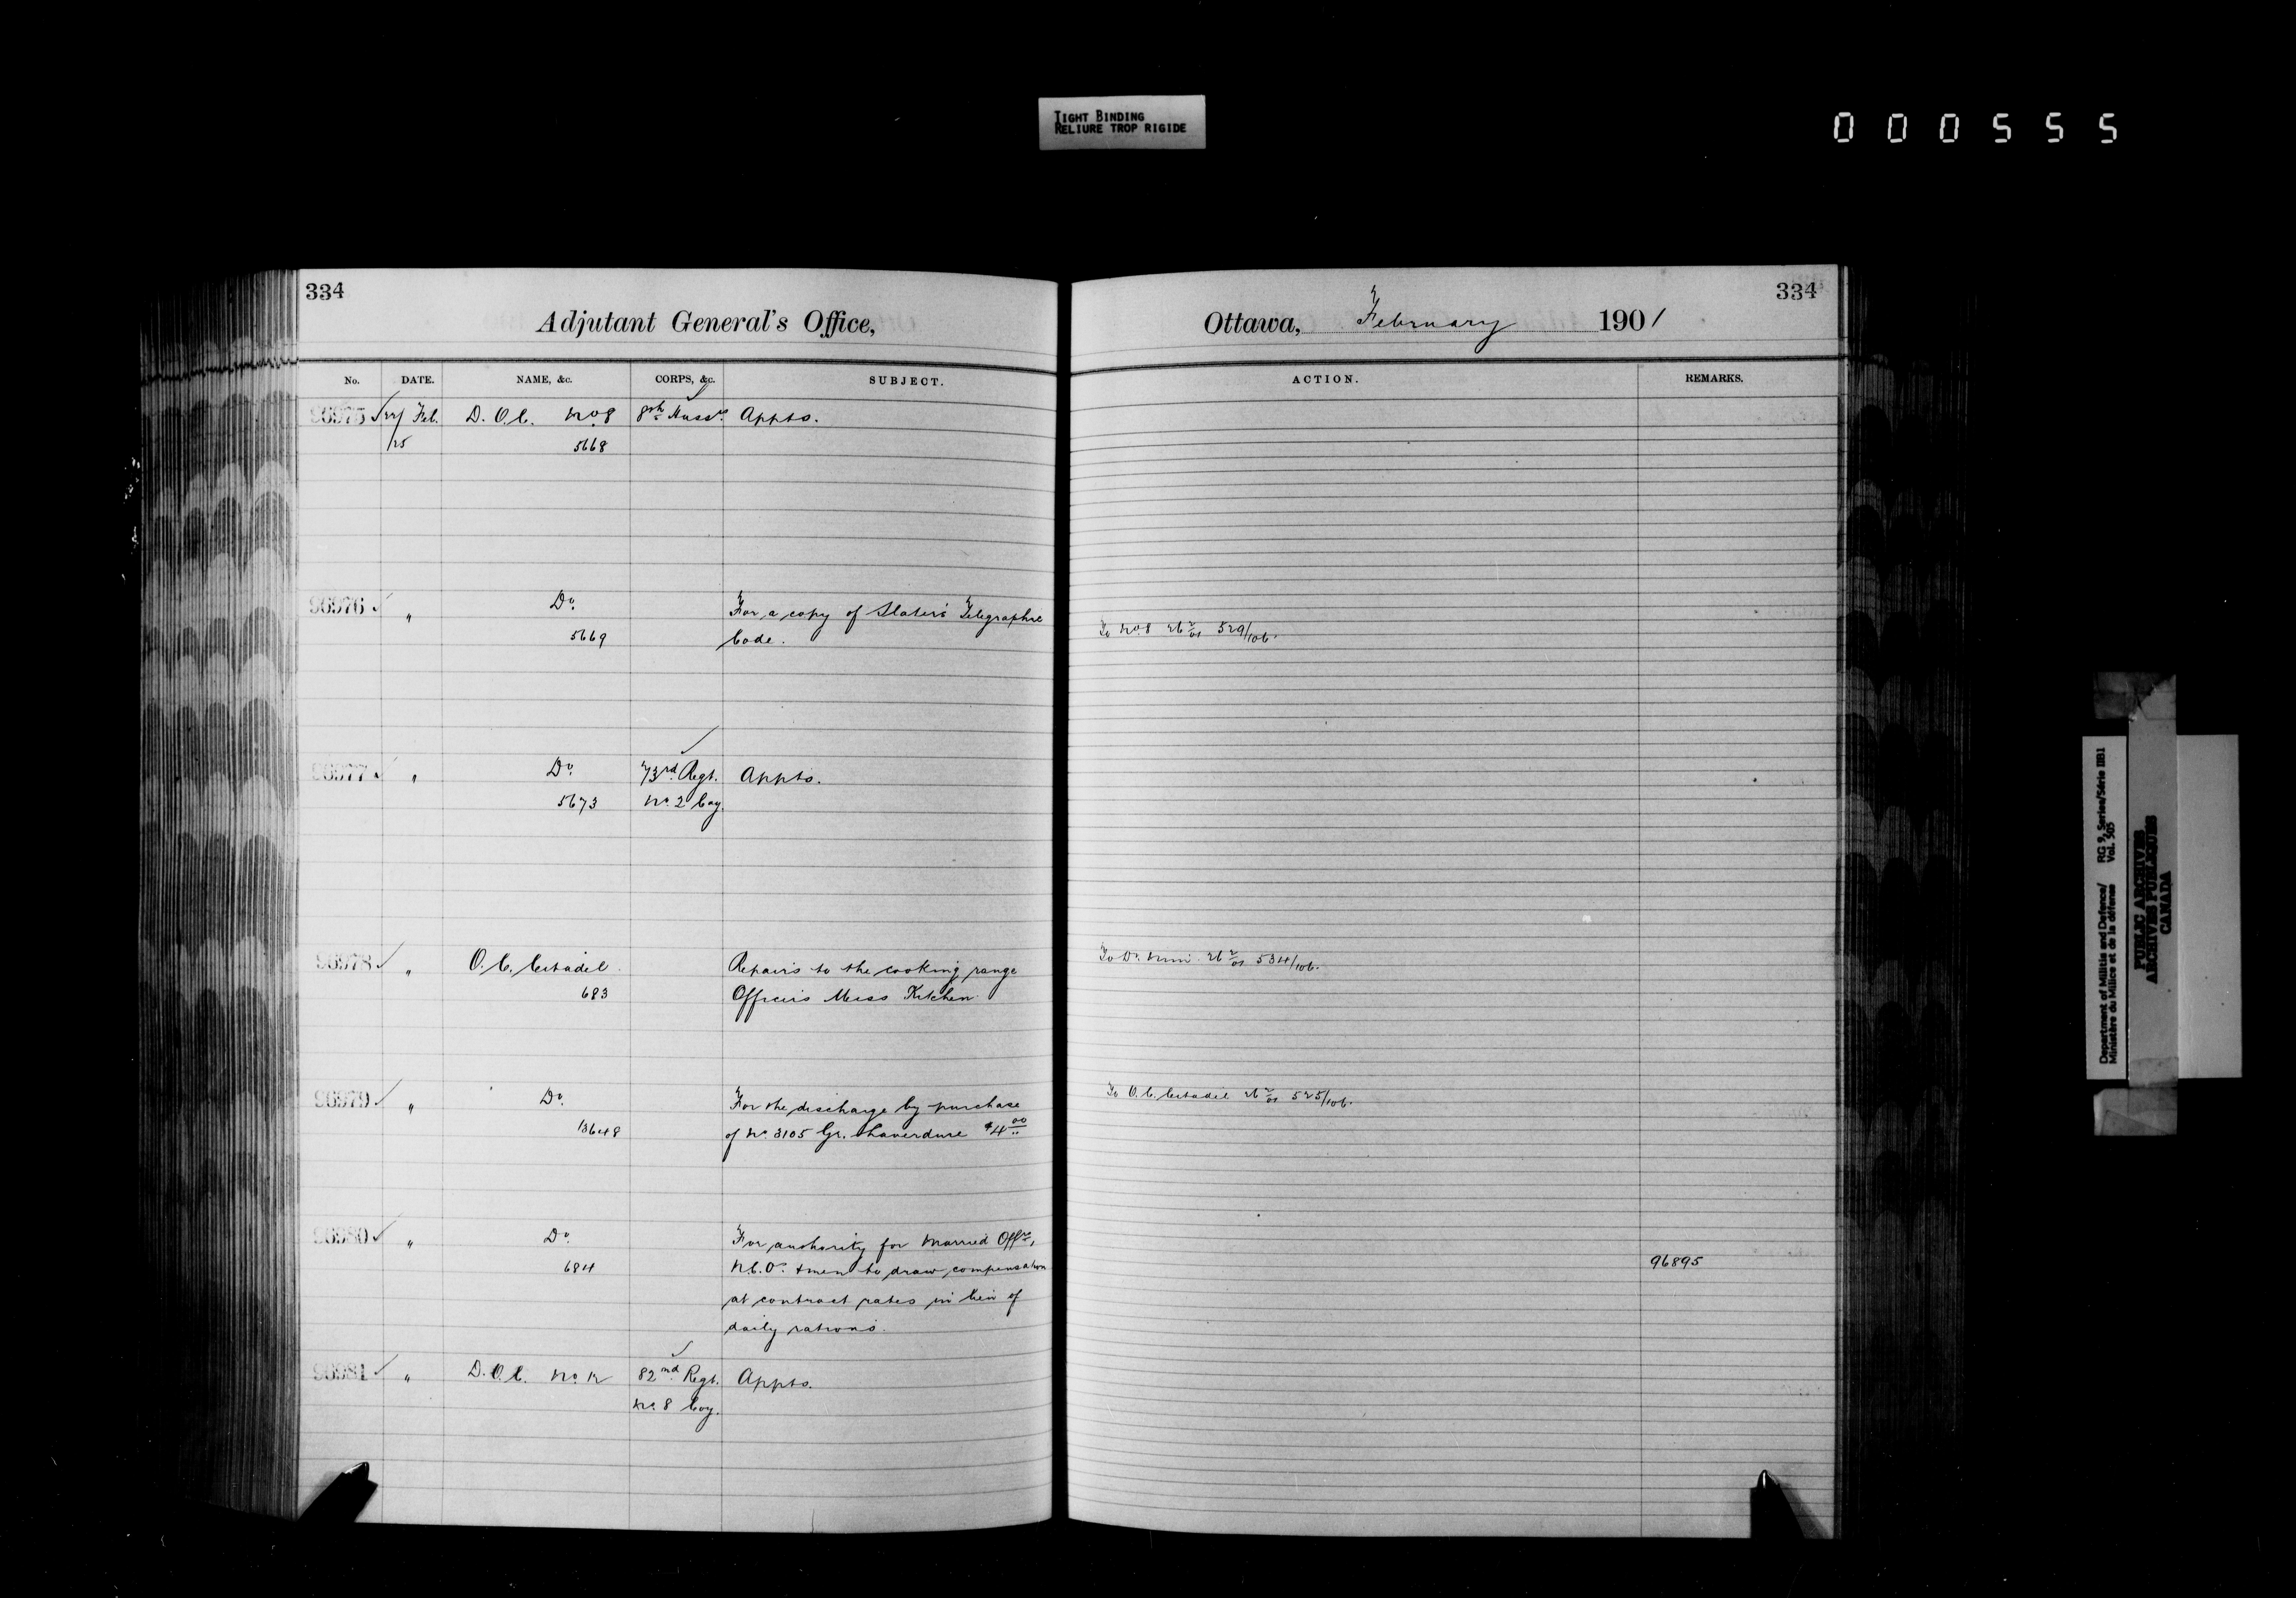 TIGHT BINDING
RELIURE TROP RIGIDE
000555
334
Adjutant General's Office,
No. DATE. NAME, &c. CORPS, &c. SUBJECT.
96975 Feb. D. O. C. No 8 8th Huss. Appts.
/25 5668
96976 " Do. For a copy of Slater's Telegraphic
5669 Code.
96977 " Do. 73rd Regt. Appts.
5673 No. 2 Coy.
96978 " O. C. Citadel. Repairs to the cooking range
683 Officers Mess Kitchen.
96979 " Do. For the discharge by purchase
13648 of No. 3105 Gr. $4 00
96980 " Do. For authority for Married Offrs,
684 N.C.O.s & men to draw compensation
at contract rates in lieu of
daily rations.
96981 " D. O. C. No. 12 82nd Regt. Appts.
No. 8 Coy.
334
Ottawa, February 1901
ACTION. REMARKS.
To No. 8 26 2/01 529/106.
To Dy. Mini 26 2/01 534/106.
To O. C. Citadel 26 2/01 525/106.
96895
Department of Militia and Defence/ RG 9, Series/Série IIB1
Ministère du Milice et de la défense Vol. 505
PUBLIC ARCHIVES
ARCHIVES PUBLIQUES
CANADA